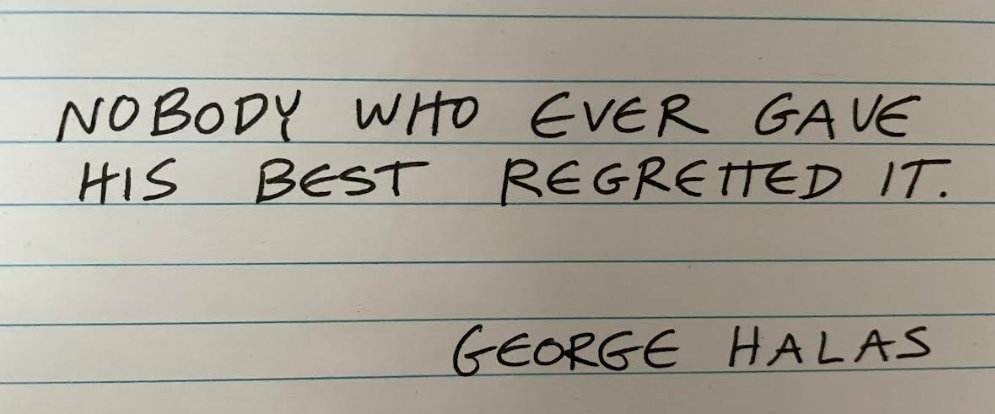 NOBODY WHO EVER GAVE
HIS BEST REGRETTED IT.
GEORGE HALAS